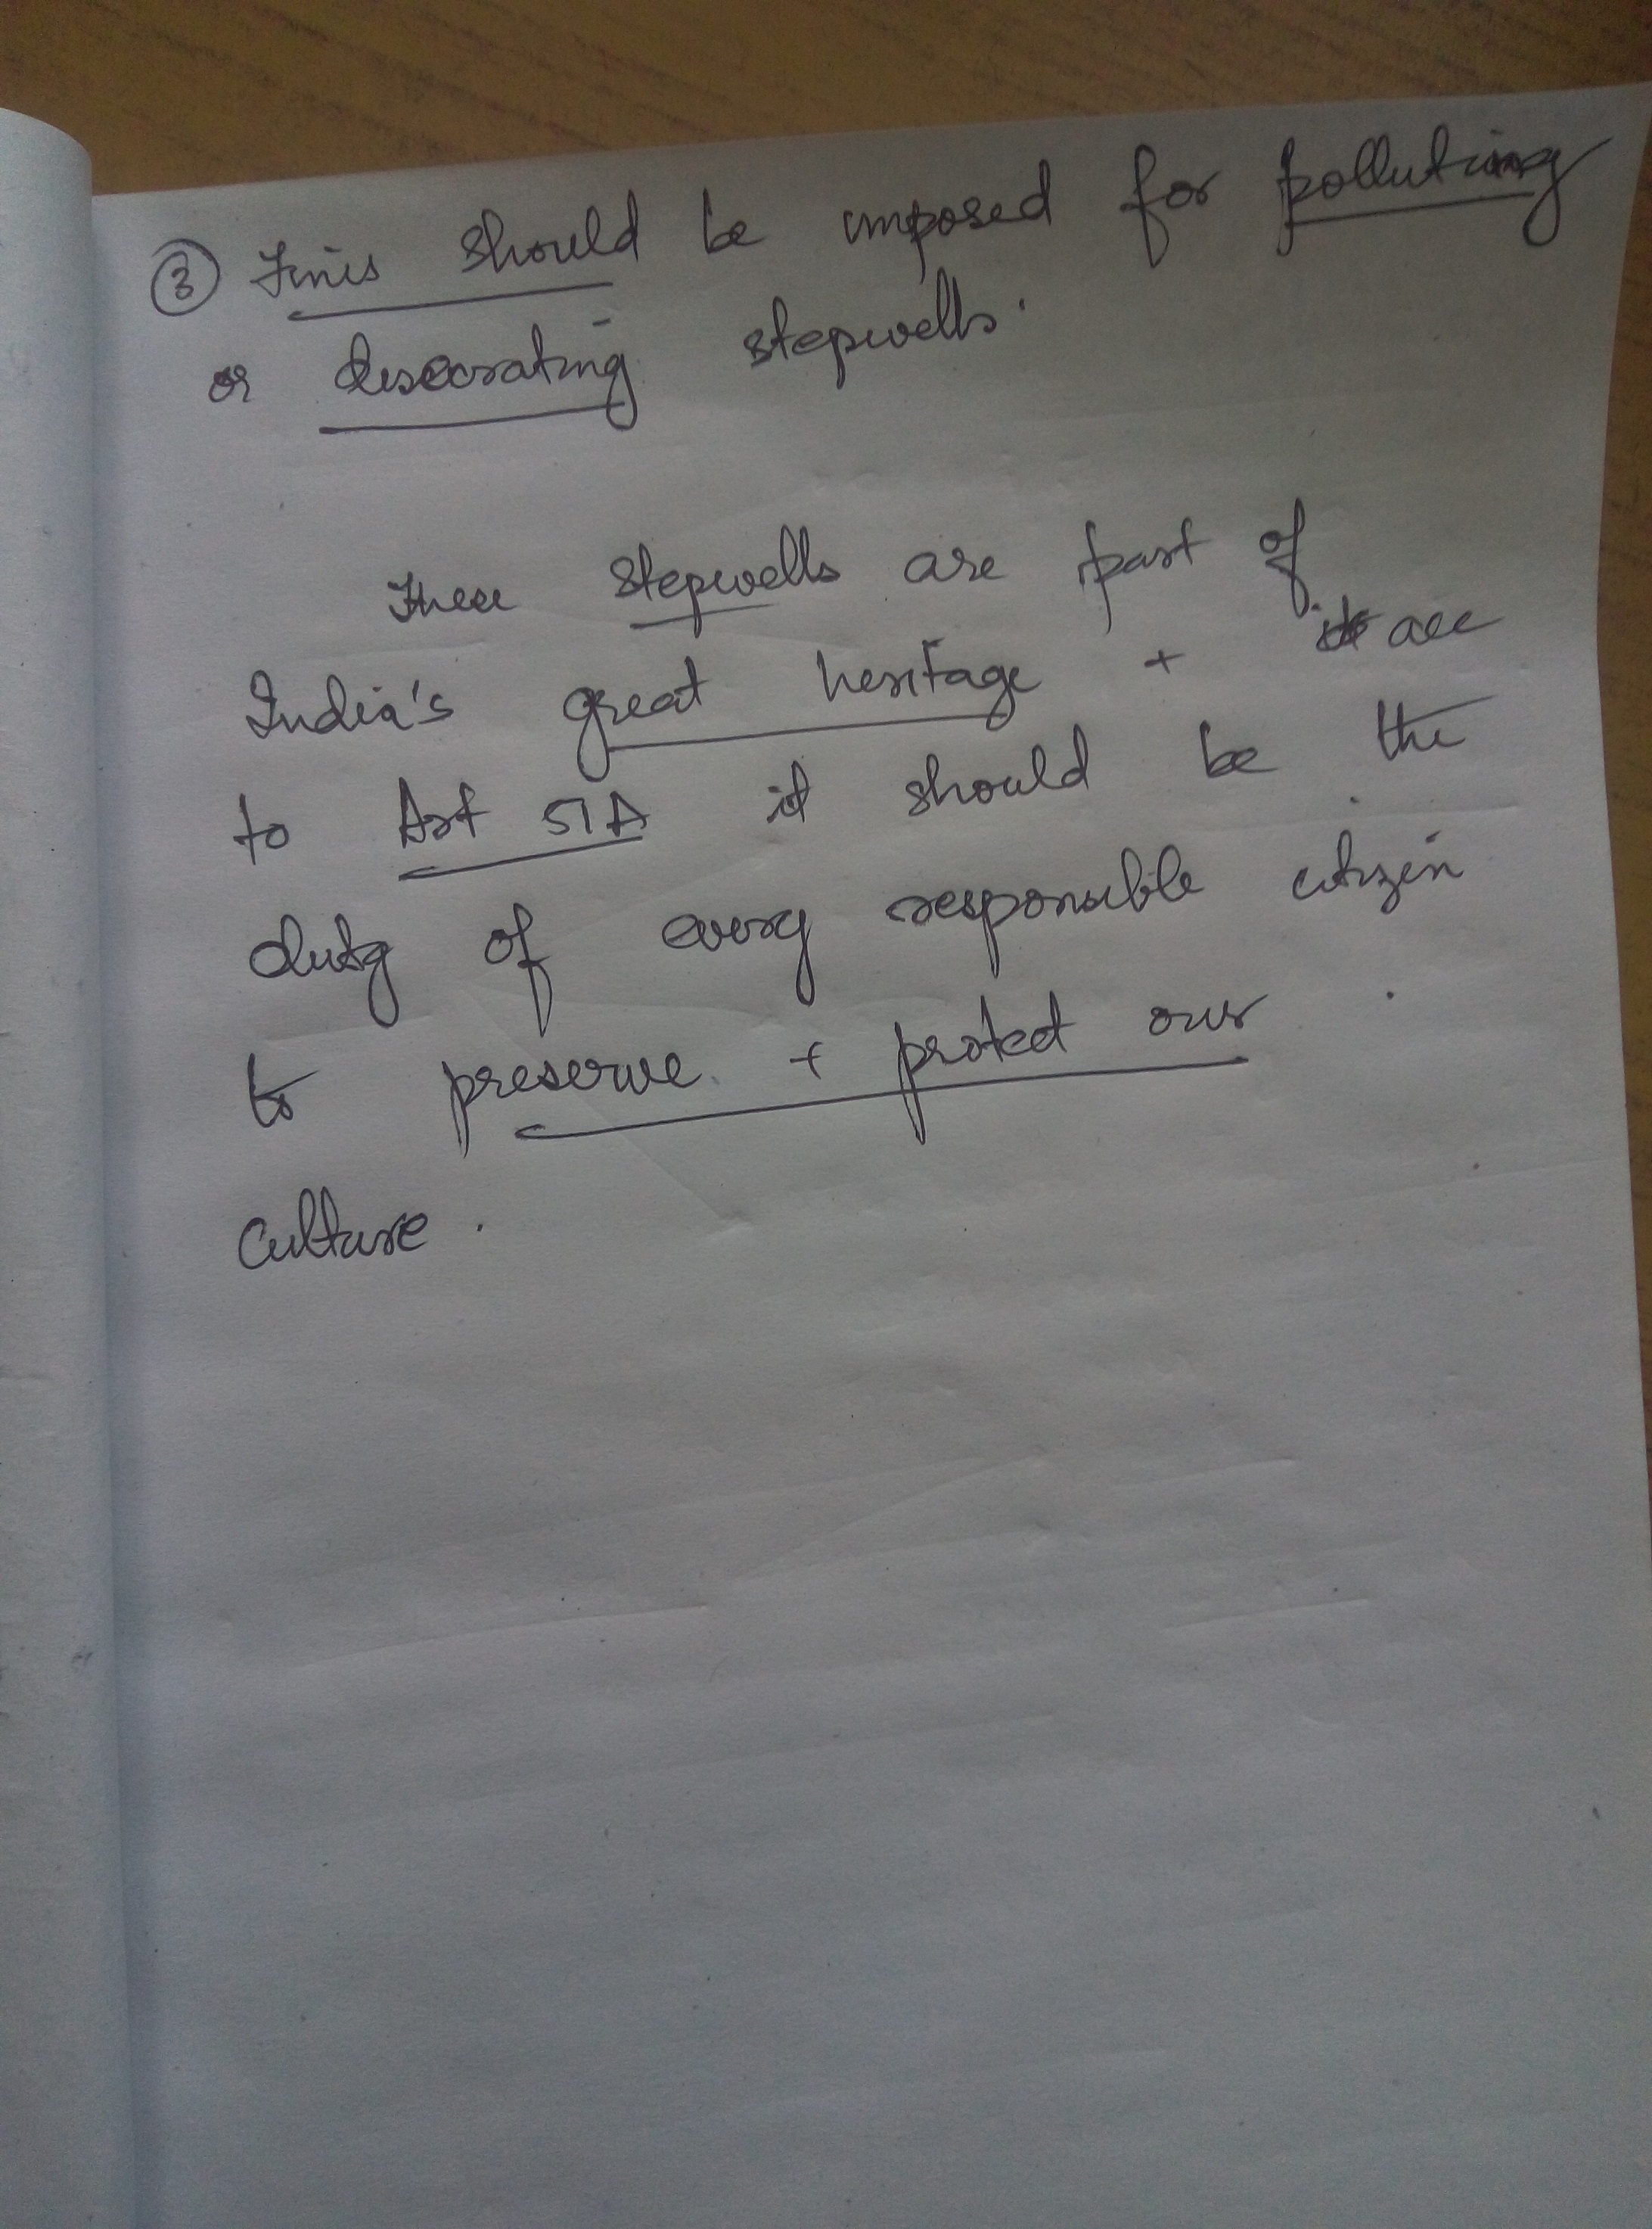 ③ Fines should be imposed for polluting
or desecrating stepwells.
These stepwells are part of
India's great heritage + acc
to Art 51A it should be the
duty of every responsible citizen
to preserve + protect our
culture.